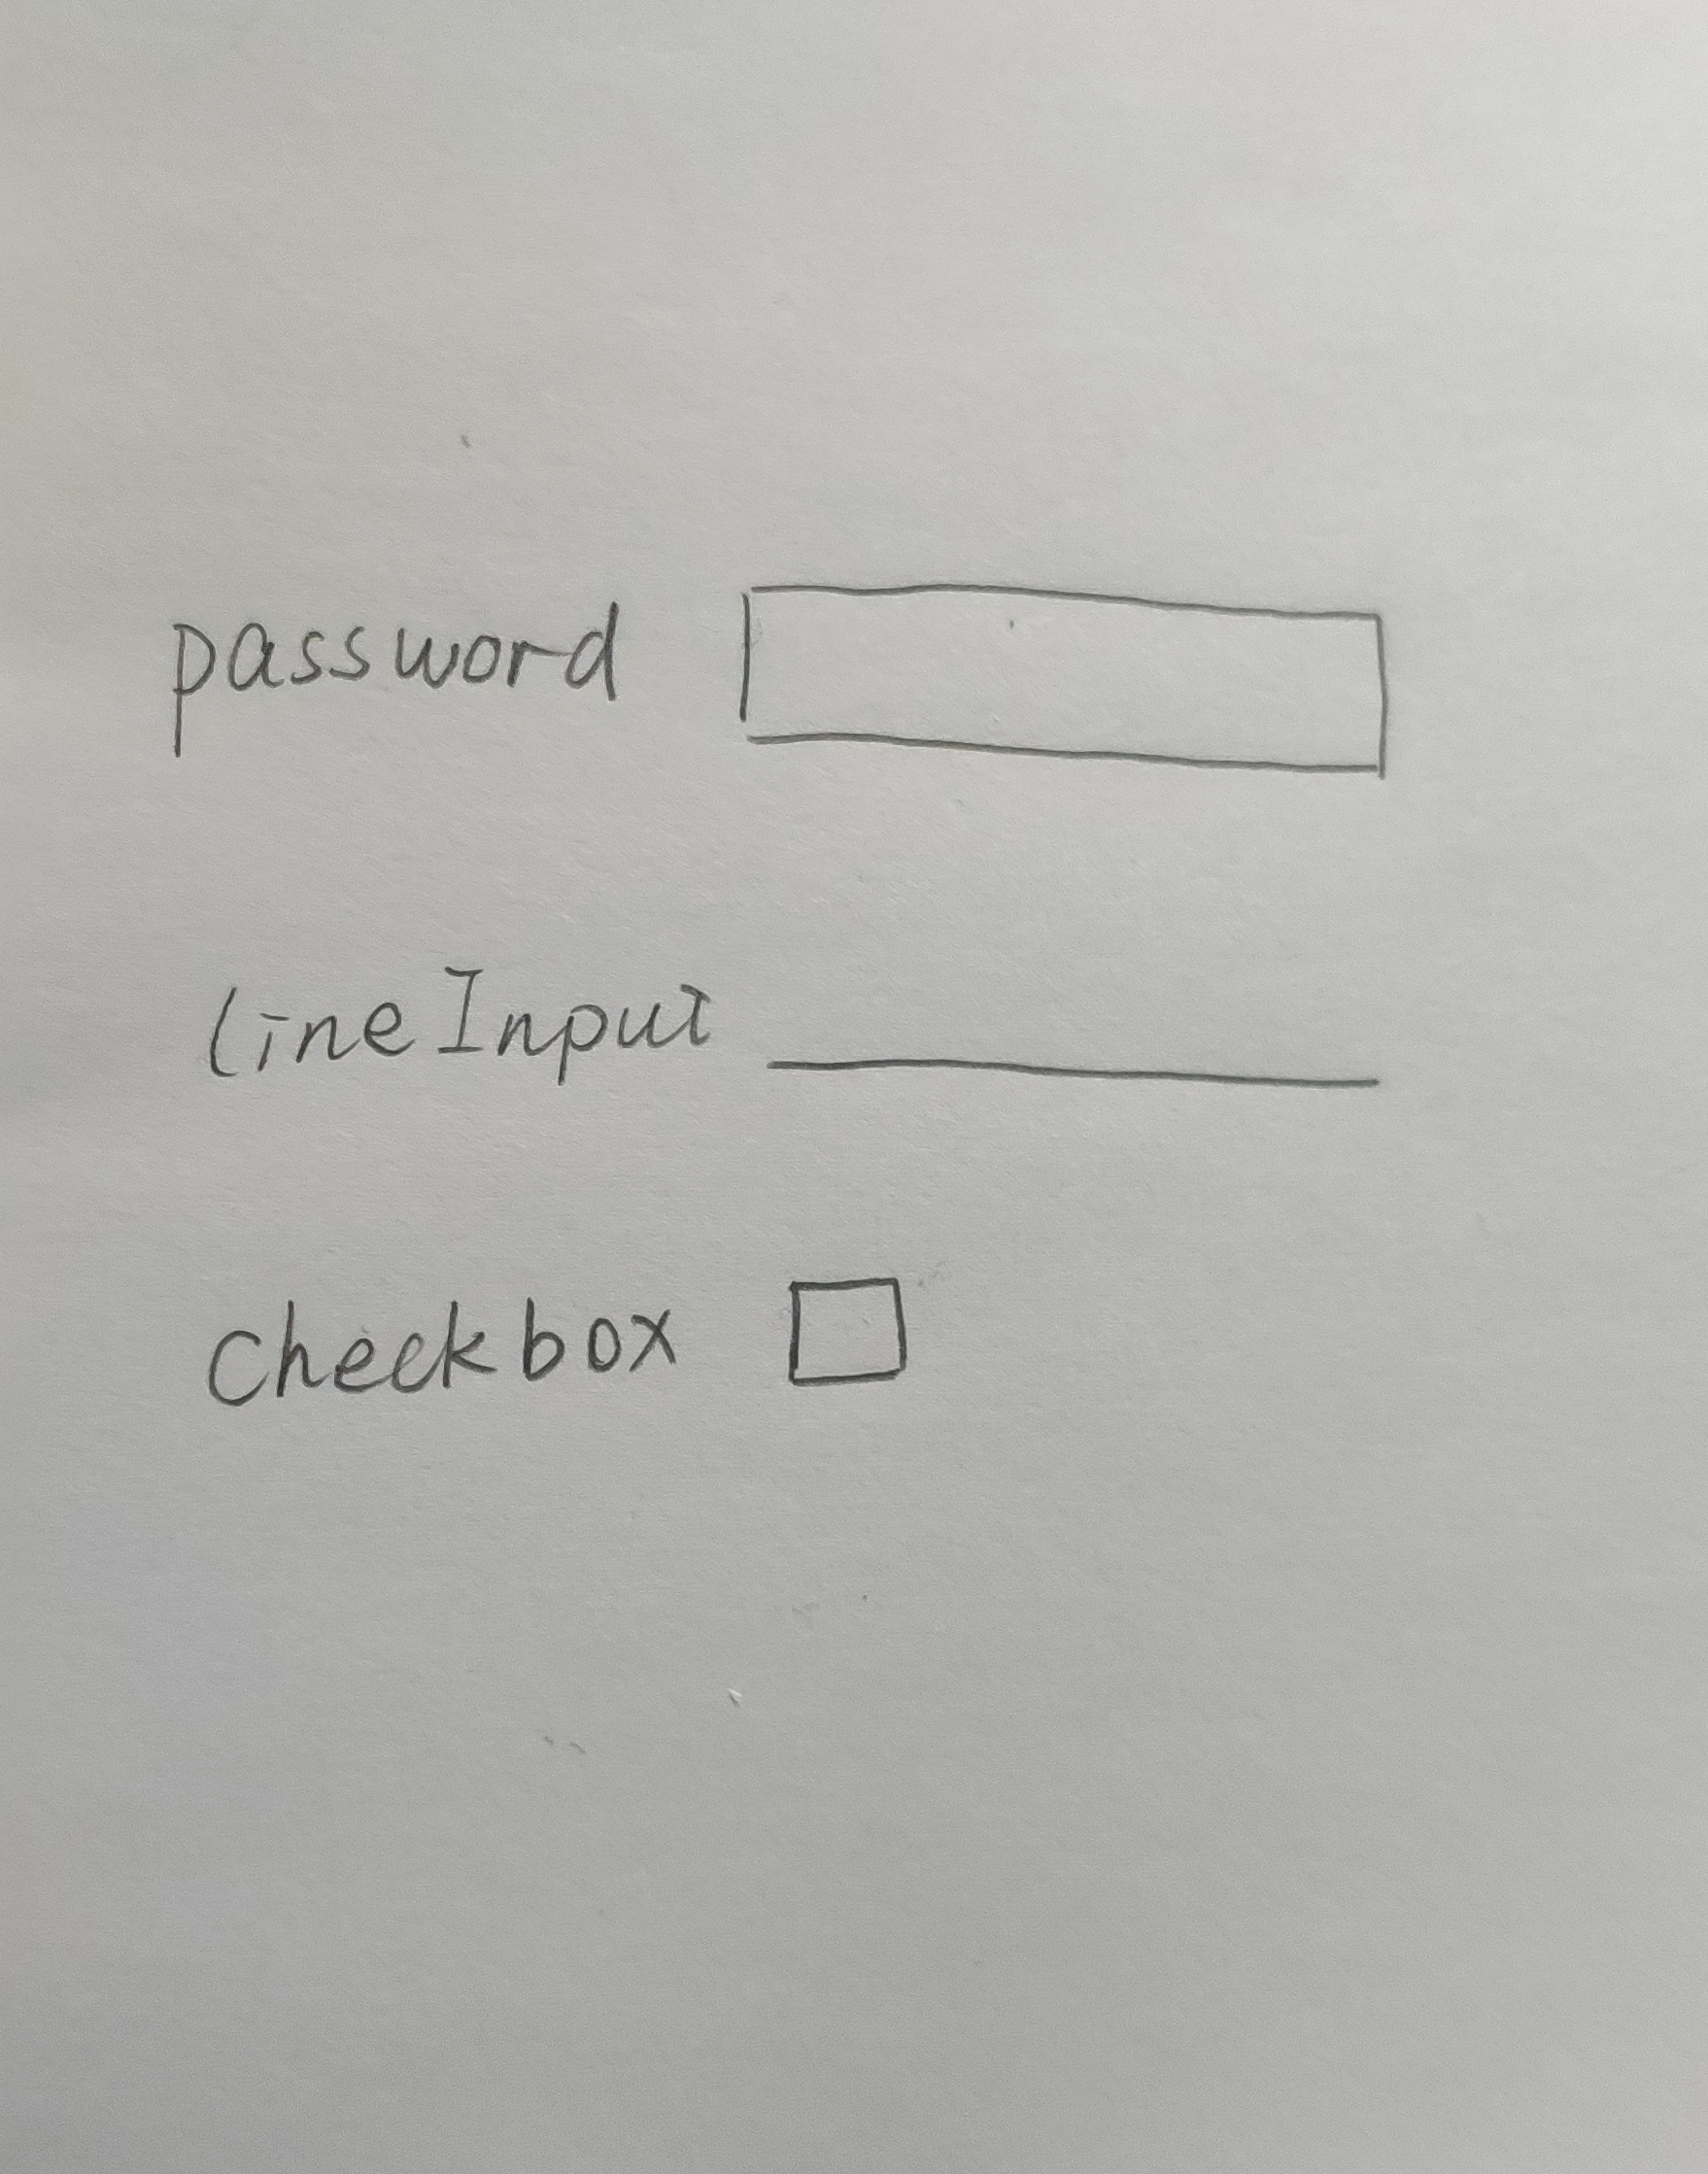 password
lineInput
checkbox